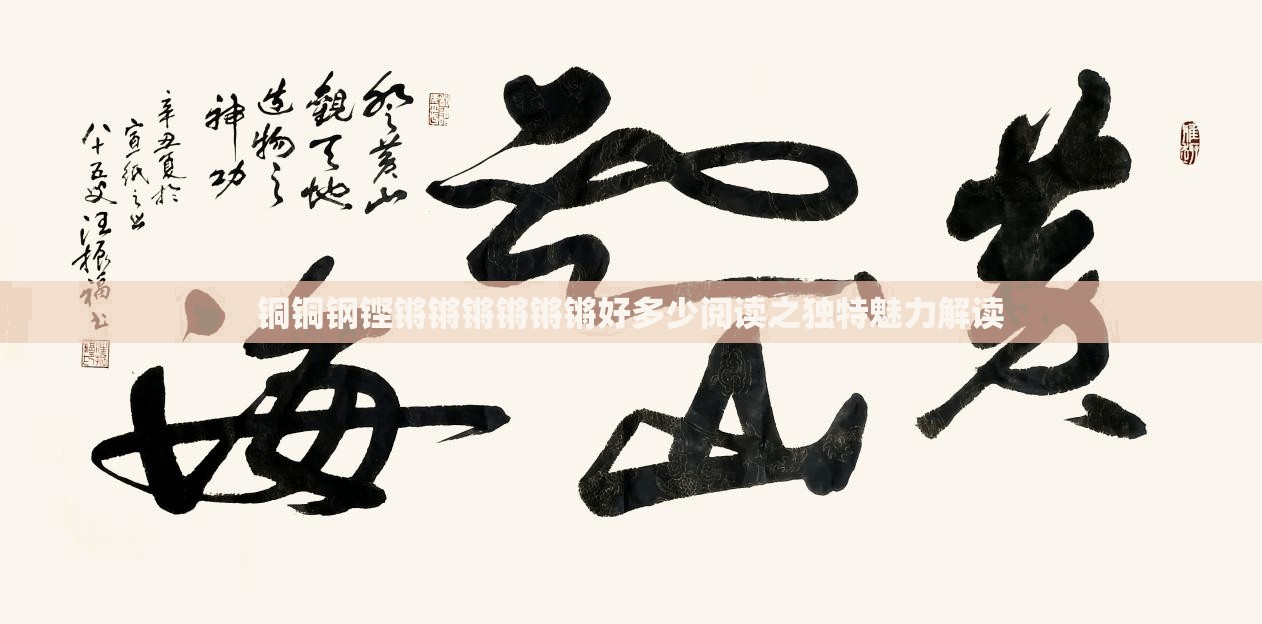 黄山云海
登黄山
觀天地
造物之
神功
辛丑夏於
宣纸之
八十五叟汪振福书
铜铜钢铿锵锵锵锵锵锵好多少阅读之独特魅力解读